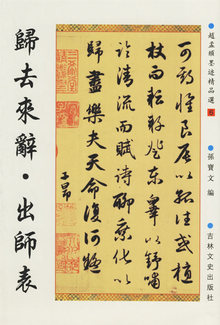 趙孟頫墨迹精品選
孫寶文 編
吉林文史出版社
可期懷良辰以孤往或植
杖而耘耔登東皋以舒嘯
臨清流而賦詩聊乘化以
歸盡樂夫天命復奚疑
子昂
歸去來辭·出師表